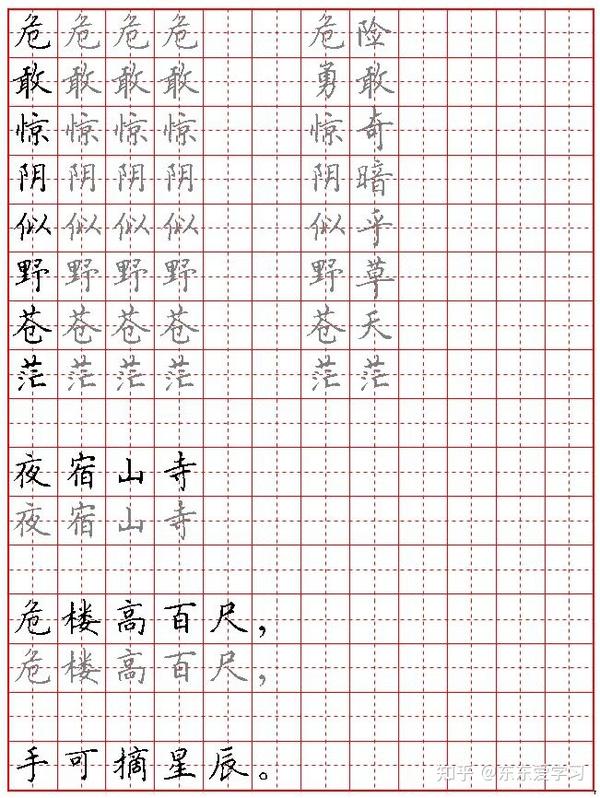 危危危危 危险
敢敢敢敢 勇敢
惊惊惊惊 惊奇
阴阴阴阴 阴暗
似似似似 似乎
野野野野 野草
苍苍苍苍 苍天
茫茫茫茫 茫茫
夜宿山寺
夜宿山寺
危楼高百尺，
危楼高百尺，
手可摘星辰。
知乎 @东东爱学习